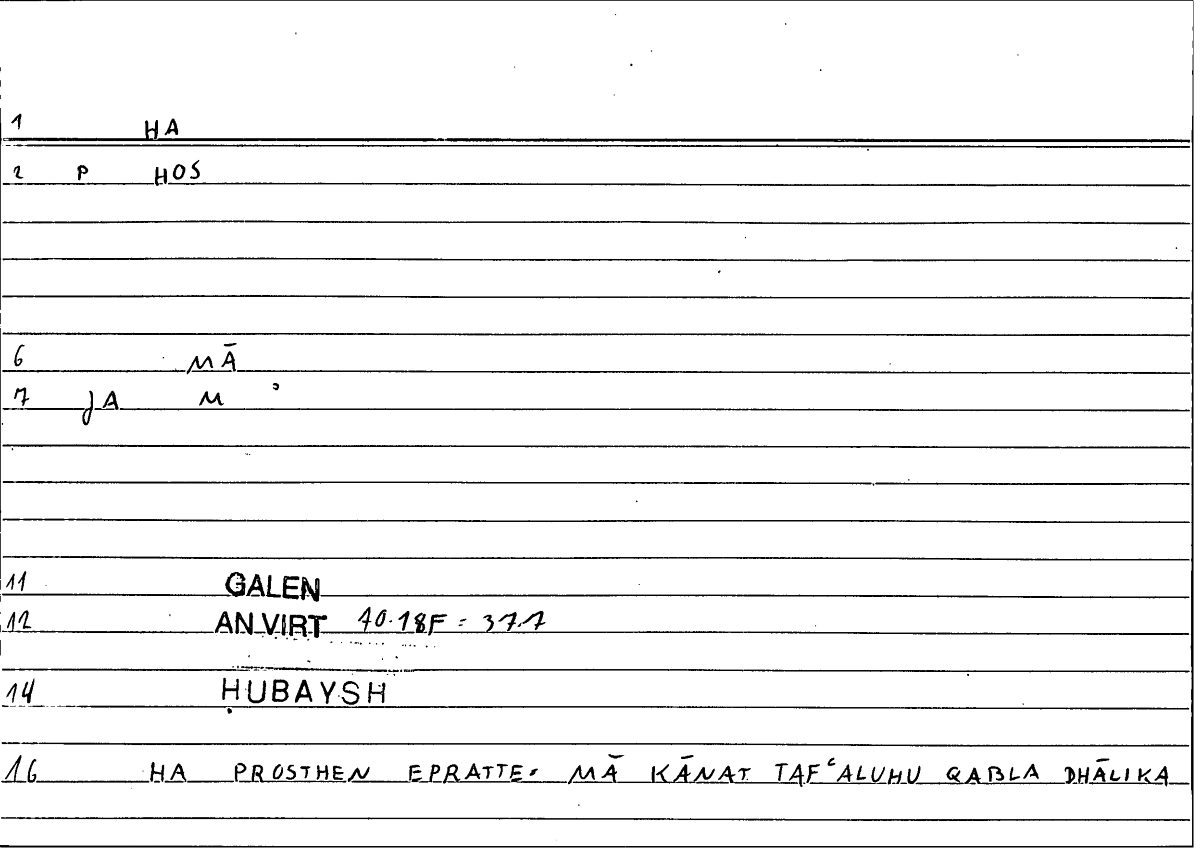 1 HA
2 P HOS
6 MĀ
7 JA M ʾ
11 GALEN
12 AN.VIRT 40.18F = 37.7
14 ḤUBAYSH
16 HA PROSTHEN EPRATTE = MĀ KĀNAT TAFʿALUHU QABLA DHĀLIKA